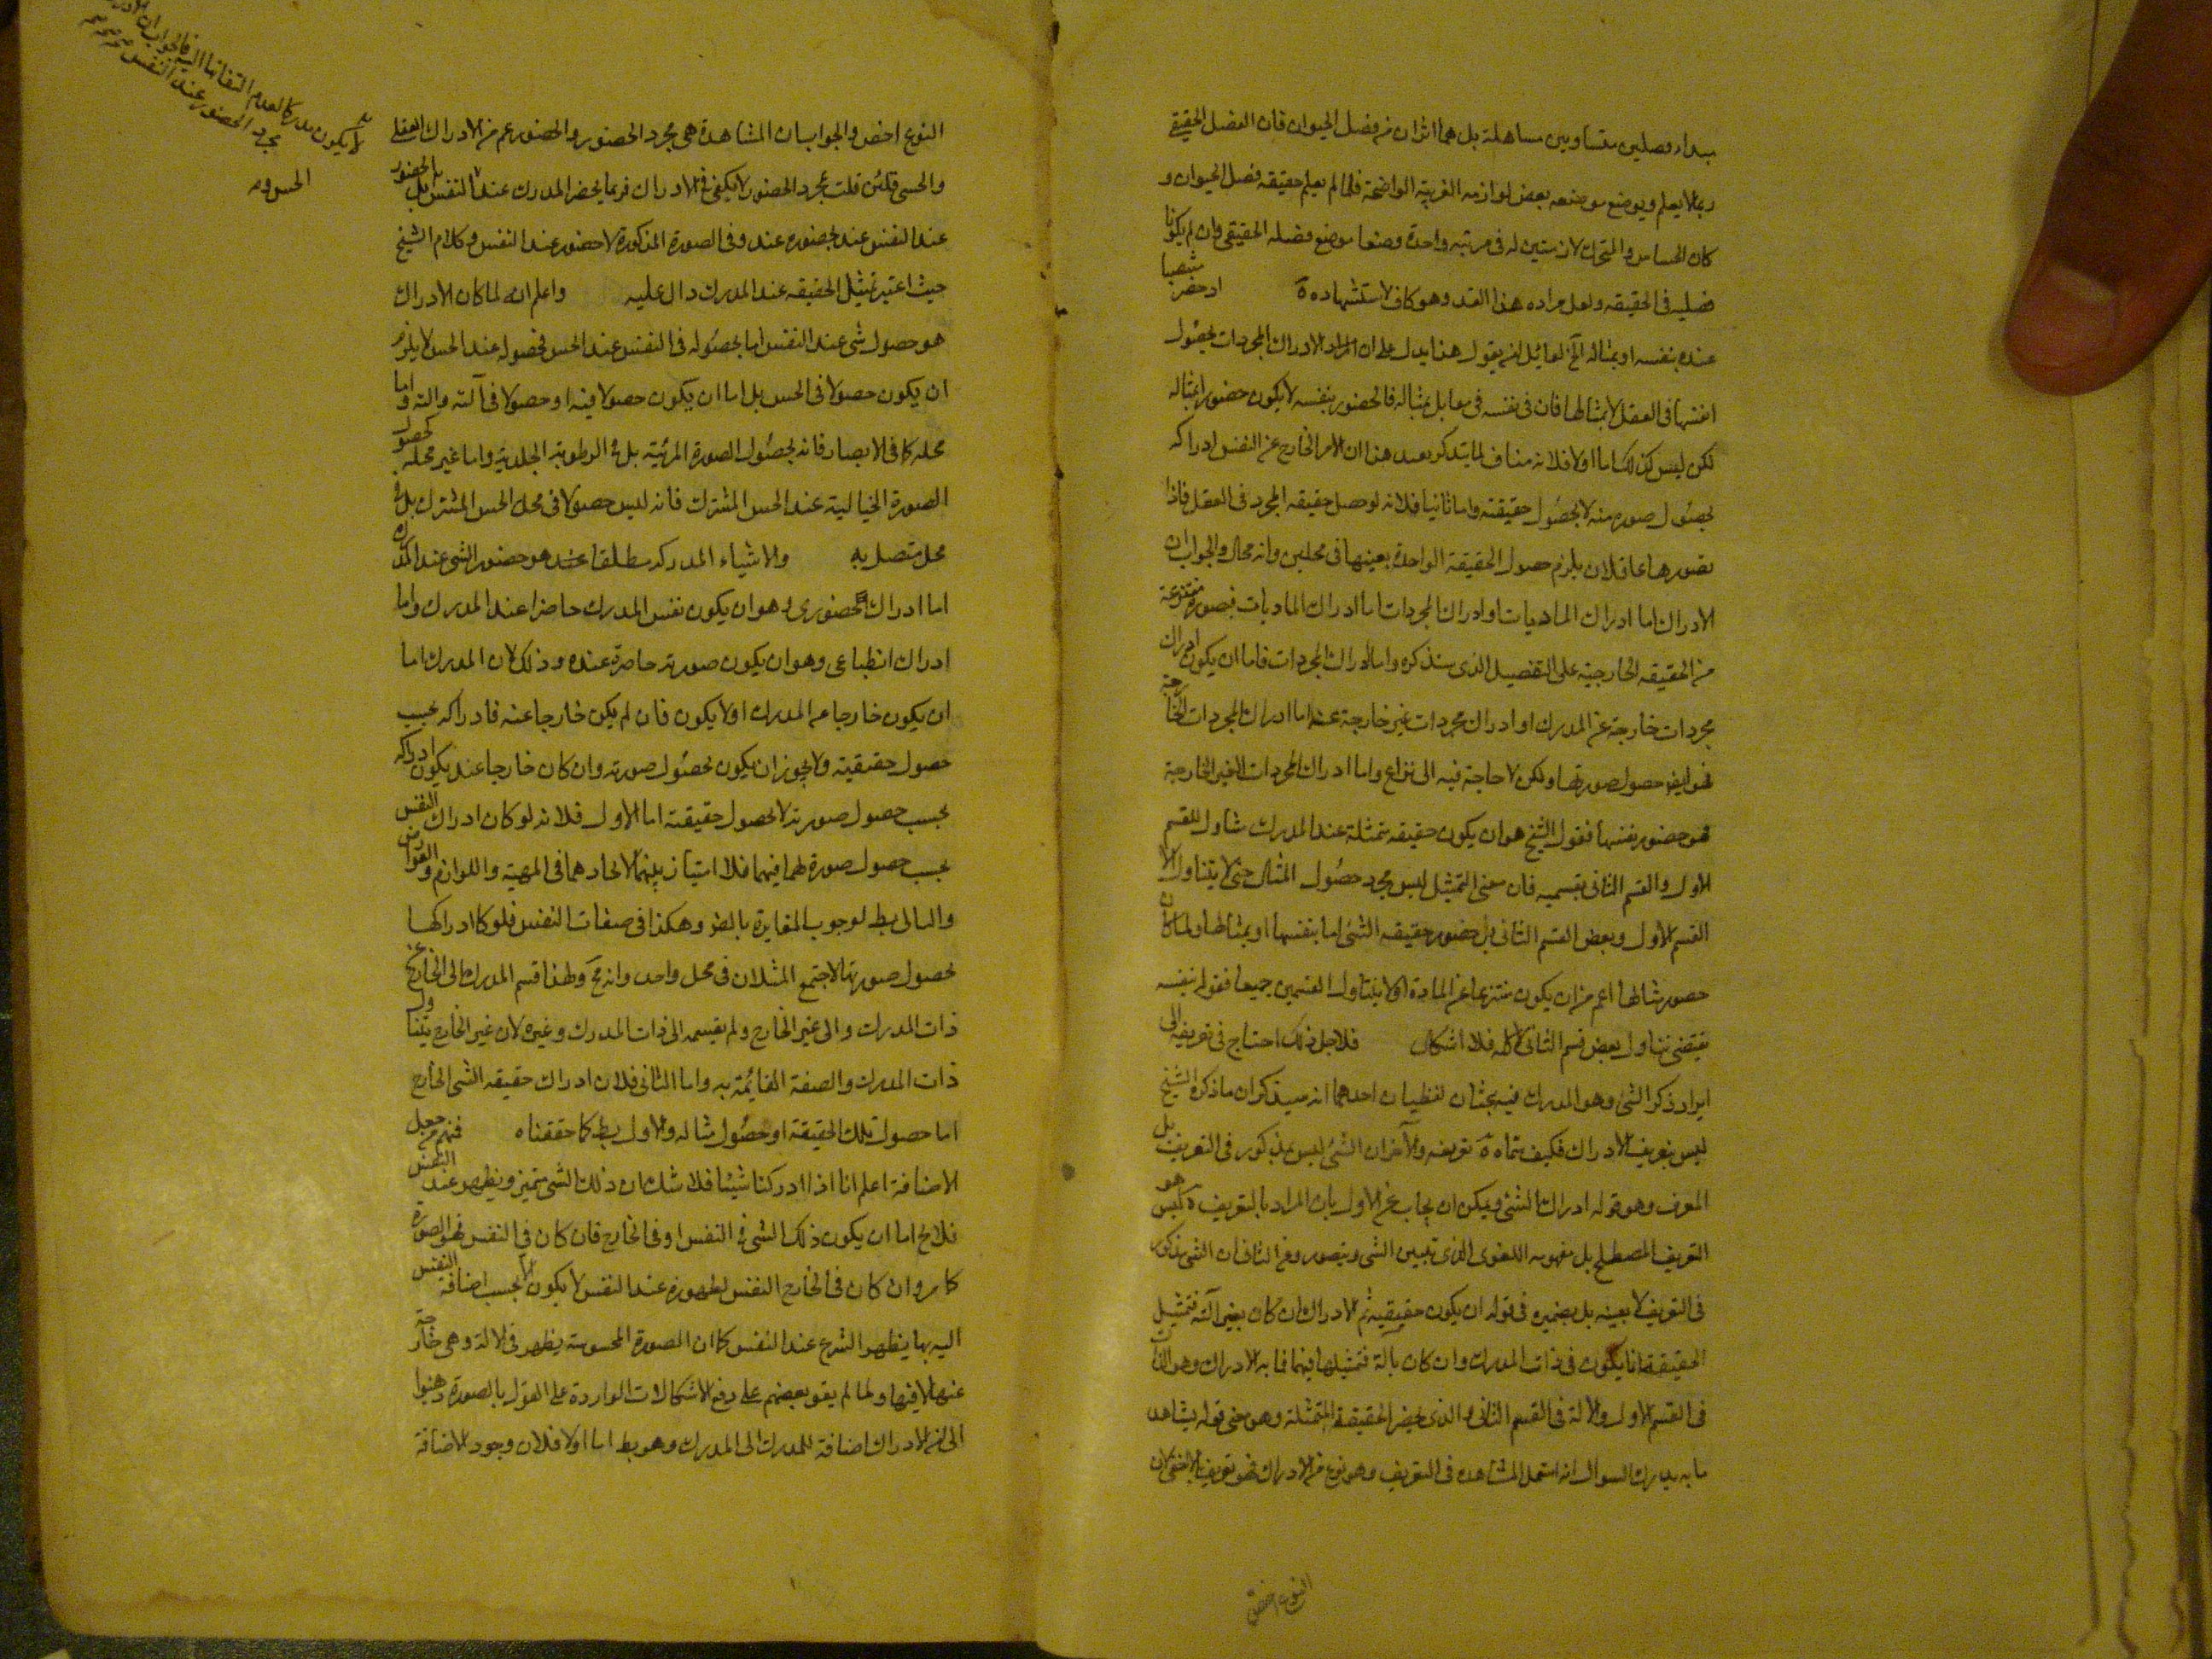 مبداء فصلين متساويين مساهلة بل هما اثران من فصل الحيوان فان الفصل الحقيقى
ربما لا يعلم ويوضع موضعه بعض لوازمه القريبة الواضحة فلما لم يعلم حقيقه فصل الحيوان و
كان الحساس والمتحرك لازمتين له فى مرتبه واحدة وضعا موضع فصله الحقيقى وان لم يكونا
فصليه فى الحقيقه ولعل مراده هذا القدر وهو كاف لاستشهاده
عنده بنفسه او بمثاله لقائل ان يقول هذا يدل على ان المراد لادراك المجردات بحصول
انفسها فى العقل لا بمثالها فان فى نفسه فى مقابل بمثاله فالحضور بنفسه لا يكون حضور بمثاله
لكن ليس كذلك اما اولا فلانه مناف لما يتذكر بعد هذا ان الامر الخارج عن النفس ادراكه
بحصول صورة منه لا بحصول حقيقته واما ثانيا فلانه لو حصل حقيقه المجرد فى العقل فاذا
تصورها عاقلان يلزم حصول الحقيقة الواحدة بعينها فى محلين وانه محال والجواب ان
الادراك اما ادراك الماديات او ادراك المجردات اما ادراك الماديات فبصورة منتزعة
من الحقيقه الخارجية على التفصيل الذى سنذكره واما ادراك المجردات فاما ان يكون ادراك
مجردات خارجة عن المدرك او ادراك مجردات غير خارجة عنه اما ادراك المجردات الخارجة
فهو ايضا حصول صورتها ولكن لا حاجة فيه الى نزاع واما ادراك المجردات الغير الخارجة
فهو حضور نفسها فقول الشيخ هو ان يكون حقيقه متمثلة عند المدرك متناول للقسم
الاول والقسم الثانى بقسميه فان معنى التمثيل ليس مجرد حصول المثال حتى لا يتناول الا
القسم الاول وبعض القسم الثانى بل حضور حقيقه الشئ اما بنفسها او بمثالها ولما كان
حضور مثالها اعم من ان يكون منتزعا عن المادة او لا يتناول القسمين جميعا فقوله بنفسه
يقتضى تناول بعض قسم الثانى فلا اشكال فلاجل ذلك احتاج فى تعريفه الى
ايراد ذكر الشئ وهو المدرك فيه بحثان لفظيان احدهما انه سيذكر ان ما ذكره الشيخ
ليس بتعريف الادراك فكيف سماه تعريفه والآخر ان الشئ ليس بمذكور فى التعريف بل
المعرف وهو قوله ادراك الشئ ويمكن ان يجاب عن الاول بان المراد بالتعريف ليس هو
التعريف المصطلح بل مفهومه اللغوى الذى تبيين الشئ وتصوره وعن الثانى ان الشئ مذكور
فى التعريف لا بعينه بل بضميره فى قوله ان يكون حقيقيه ثم الادراك ان كان بغير آلة فتمثيل
الحقيقة انما يكون فى ذات المدرك وان كان بالة فتمثيلها فيها فما به الادراك وهو الذات
فى القسم الاول والالة فى القسم الثانى والذى يحضر الحقيقة المتمثلة وهو معنى قوله يشاهد
ما به يدرك السوال انه استعمل المشاهدة فى التعريف وهو نوع من الادراك فهو تعريف بالاخفى لان
النوع اخص
النوع اخص والجواب ان المشاهدة هى مجرد الحضور والحضور اعم من الادراك العقلى
والحسى فلئن قلت مجرد الحضور لا يكفى فى الادراك فربما يحضر المدرك عند النفس بل بالحضور
عند النفس عند الحضوره عنده وفى الصورة المذكورة لا حضور عند النفس وكلام الشيخ
حيث اعتبر تمثيل الحقيقه عند المدرك دال عليه واعلم انه لما كان الادراك
هو حصول شئ عند النفس اما بحصوله فى النفس عند الحس فحصوله عند الحس لا يلزم
ان يكون حصولا فى الحس بل اما ان يكون حصولا فيه او حصولا فى آلته والته واما
محله كما فى الابصار فانه لحصول الصورة المرئية بل فى الرطوبة الجلدية واما غير محله كحصول
الصورة الخيالية عند الحس المشترك فانه ليس حصولا فى محل الحس المشترك بل فى
محل متصل به والاشياء المدركه مطلقا هو حضور الشئ عند المدرك
اما ادراك حضورى وهو ان يكون نفس المدرك حاضرا عند المدرك واما
ادراك انطباعى وهو ان يكون صورته حاضرة عنده وذلك لان المدرك اما
ان يكون خارجا عن المدرك او لا يكون فان لم يكن خارجا عنه فادراكه بحسب
حصول حقيقيته ولا يجوز ان يكون بحصول صورته وان كان خارجا عنه يكون ادراكه
بحسب حصول صورته لا بحصول حقيقته اما الاول فلانه لو كان ادراك النفس
بحسب حصول صورة لهما فيهما فلا امتياز بينهما لاتحادهما فى المهية واللوازم والعوارض
والتالى بط لوجوب المغايرة بالضر وهكذا فى صفات النفس فلو كان ادراكها
بحصول صورتها لاجتمع المثلان فى محل واحد وانه مح ولهذا قسم المدرك الى الخارج عن
ذات المدرك والى غير الخارج ولم يقسمه الى ذات المدرك وغيره لان غير الخارج يتناول
ذات المدرك والصفة القائمة به واما الثانى فلان ادراك حقيقه الشئ الخارج
اما حصول تلك الحقيقة او حصول مثاله والاول بط كما حققناه فمنهم من جعل
الاضافة اعلم انا اذا ادركنا شيئا فلا شك ان ذلك الشئ متميز ويظهر عند النفس
فلا يخ اما ان يكون ذلك الشئ فى النفس او فى الخارج فان كان فى النفس فهو الصورة
كما مر وان كان فى الخارج النفس لظهوره عند النفس لا يكون الا بحسب اضافة النفس
اليه بها يظهر الشئ عند النفس كما ان الصورة المحسوسة يظهر فى الالة وهى خارجة
عنها لا فيها ولما لم يقو بعضهم على دفع الاشكالات الواردة على القول بالصورة ذهبوا
الى ان الادراك اضافة للمدرك الى المدرك وهو بط اما اولا فلان وجود الاضافة
لا يكون مدركا لعدم التفاتها اليه فالجواب ان الادراك
بمجرد الحضور عند النفس
الحس